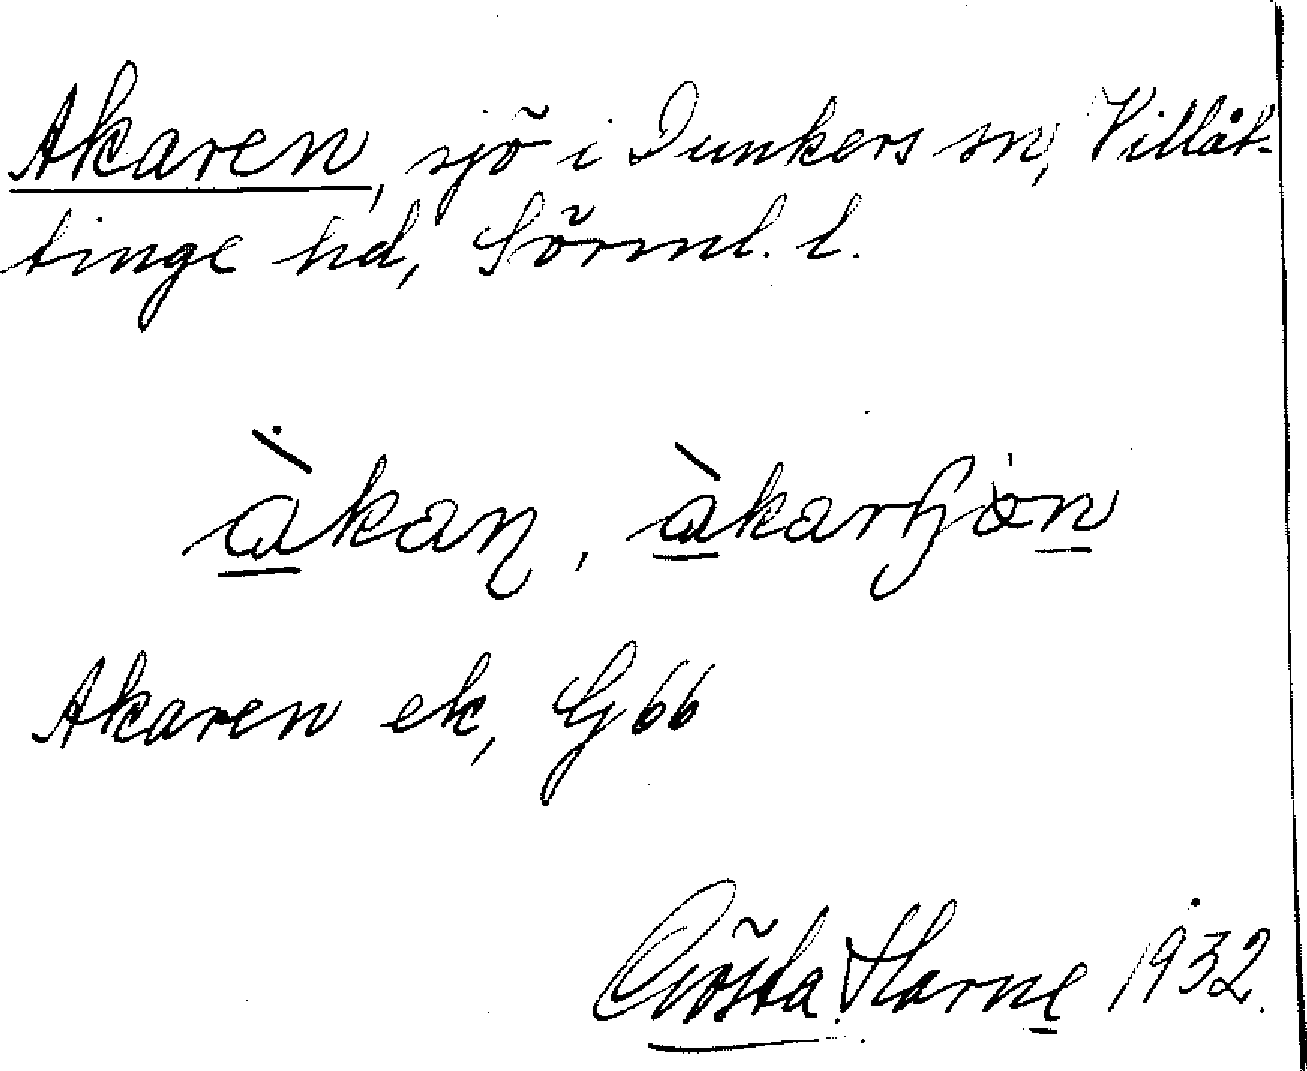 Akaren, sjö i Dunkers sn, Villåt-
tinge hd, Sörml. l.
àkaɳ,
Akaren ek, G 66
Gösta Harne 1932.